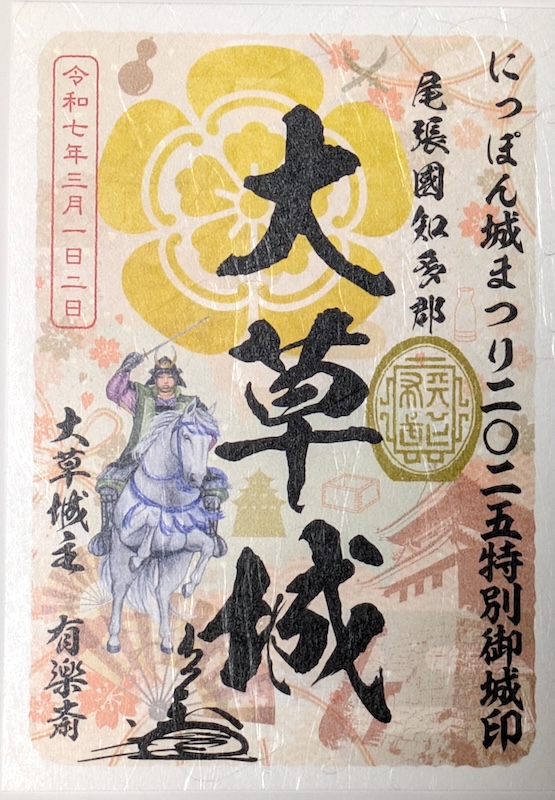 にっぽん城まつり二〇二五特別御城印
尾張國知多郡
大草城
令和七年三月一日二日
大草城主 有楽斎